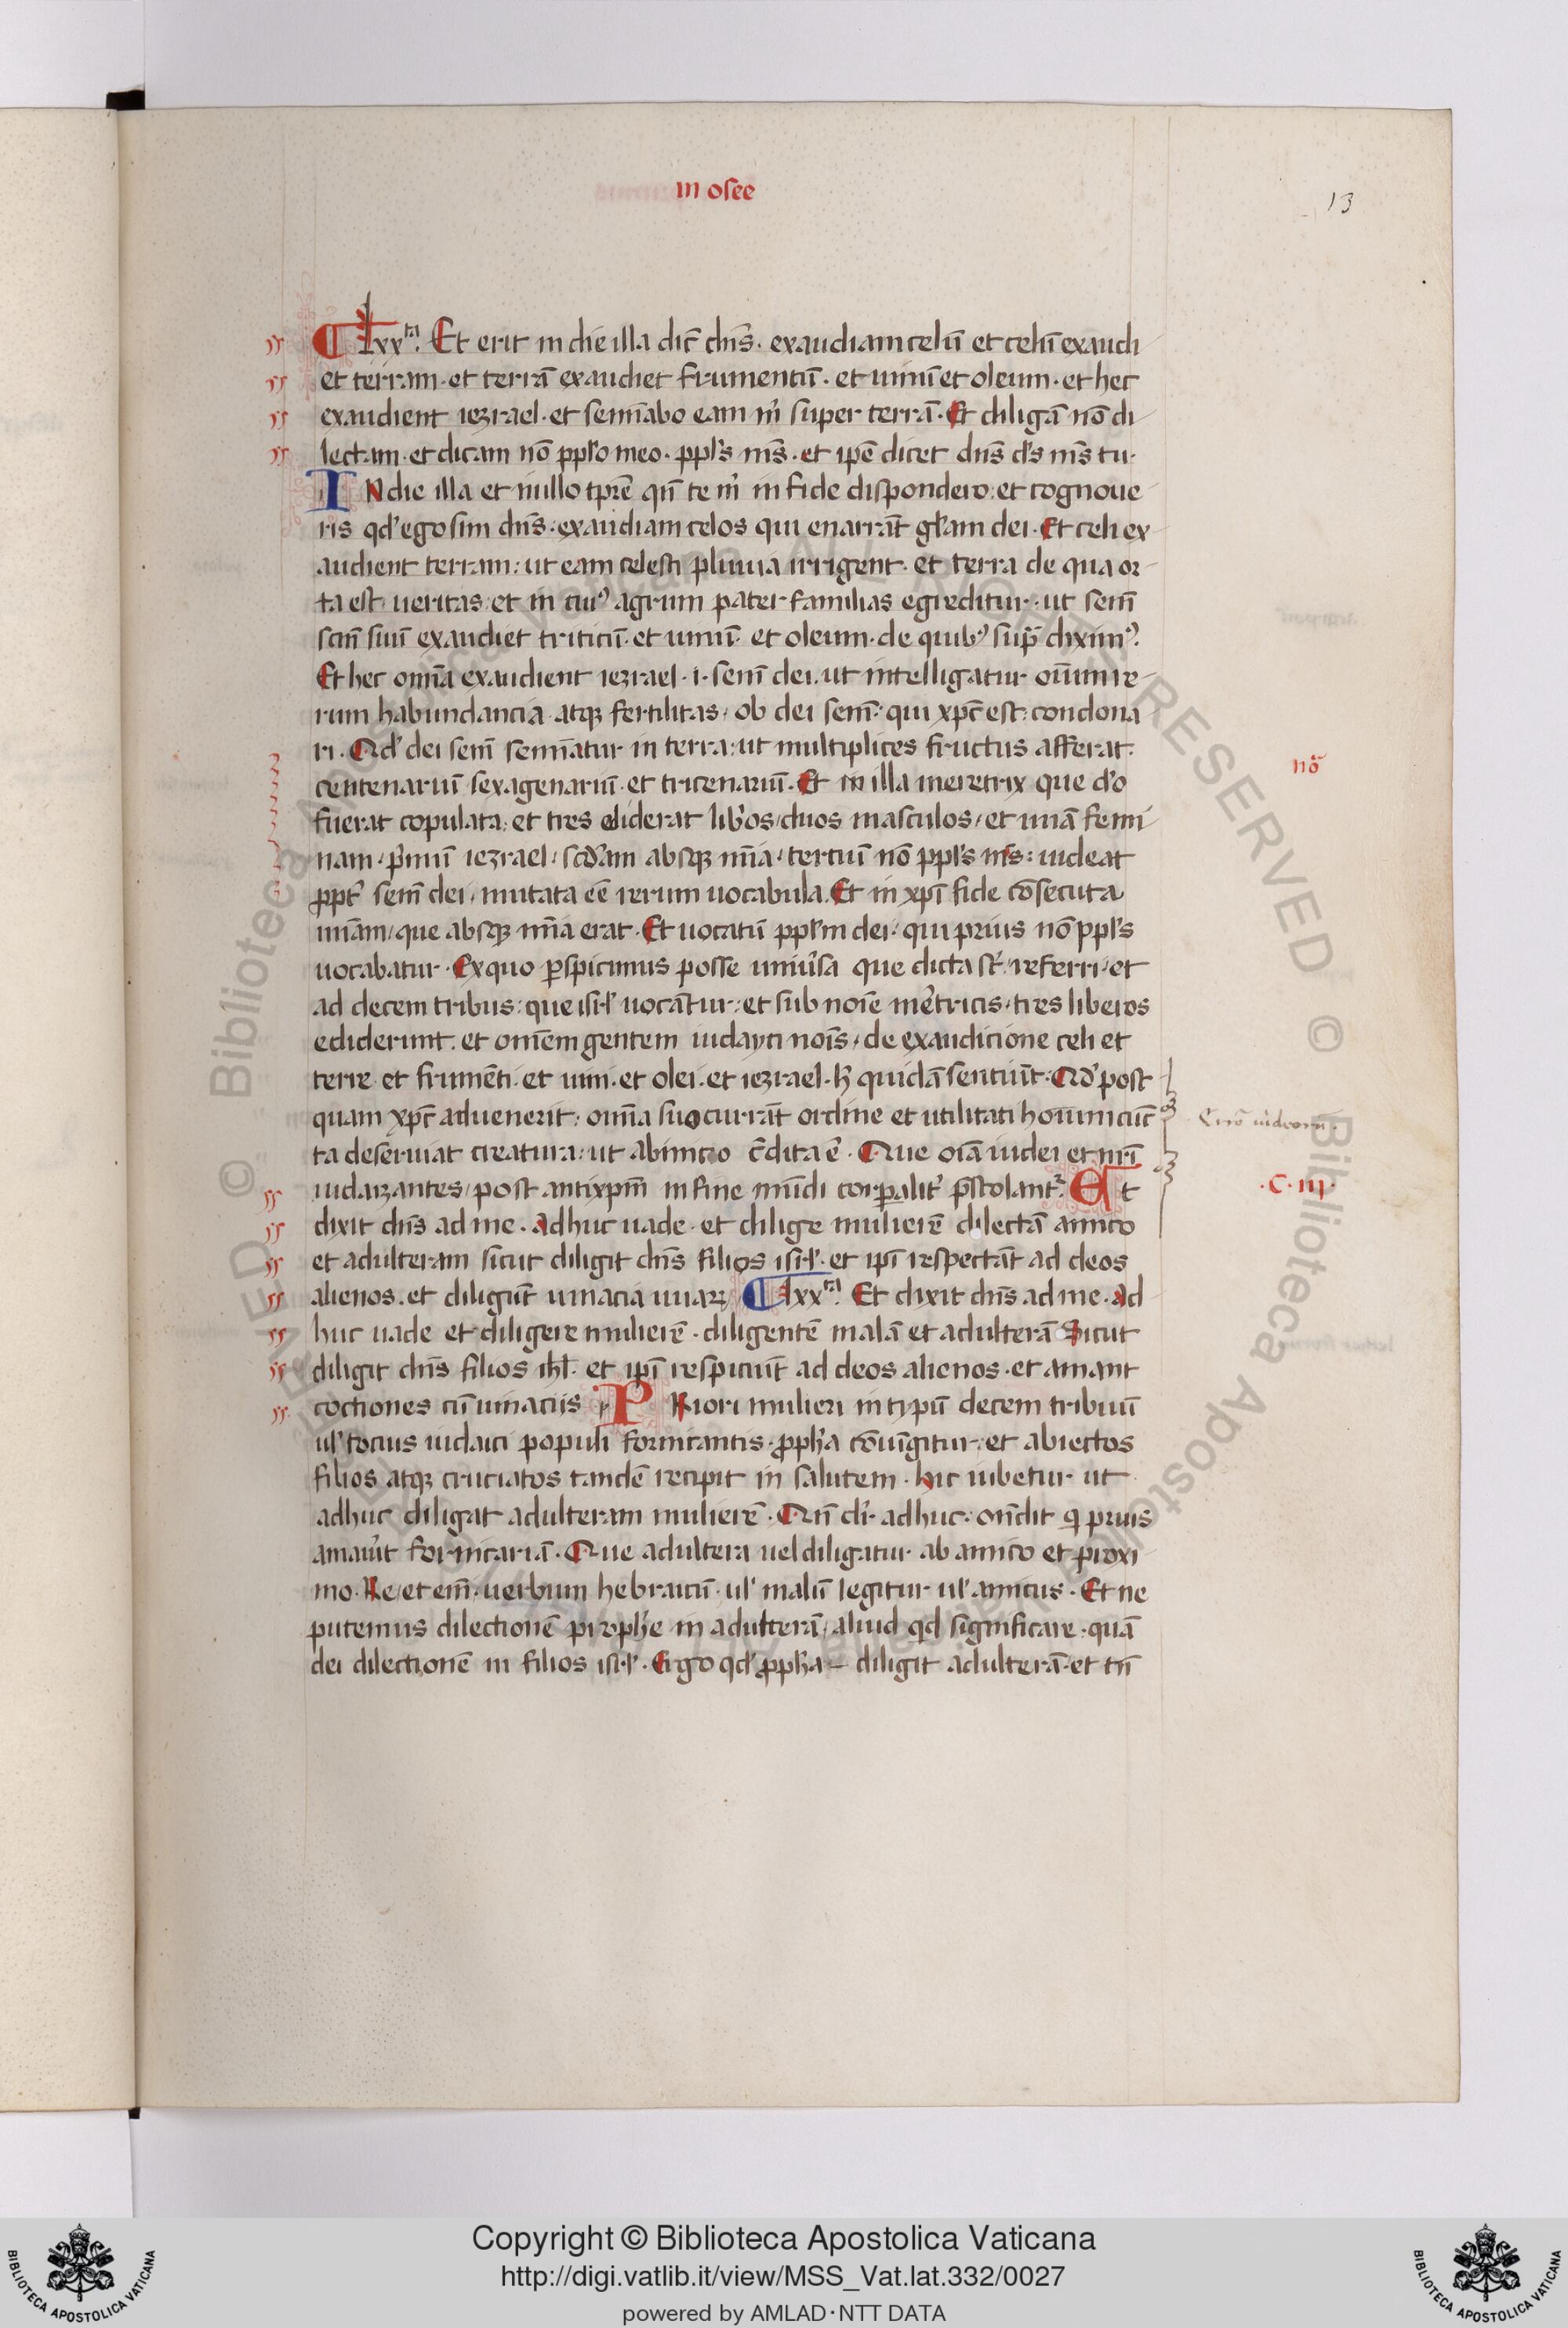 in osee
13
lxxta. Et erit in die illa dic̄ dn̄s. exaudiam celū et celū exaudi
et terram. et terrā exaudiet frumentū. et uinū et oleum. et hec
exaudient iezrael. et semīabo eam m̄ super terrā. Et diligā nō di
lectam. et dicam nō pplo meo. ppls ms̄. et ipē dicet dn̄s ds ms̄ tu.
IN die illa et in illo tpr̄e qn̄ te m̄ in fide dispondero. et cognoue
ris qd ego sim dn̄s. exaudiam celos qui enarrāt glam dei. Et celi ex
audient terram: ut eam celesti pluuia irrigent. et terra de qua or
ta est ueritas. et in cuiꝰ agrum pater familias egreditur. ut sem̄
scm̄ suū exaudiet triticū. et uinū. et oleum. de quibꝰ sup̄ diximꝰ.
Et hec omīa exaudient iezrael. i. sem̄ dei. ut intelligatur oīum re
rum habundancia atqꝫ fertilitas, ob dei sem̄. qui xpc̄ est. condona
ri. Qd dei sem̄ semīatur in terra: ut multiplices fructus afferat.
centenariū sexagenariū. et tricenariū. Et in illa meretrix que do
fuerat copulata. et tres ediderat libos, duos masculos, et unā femi
nam, pimū iezrael, scdam absqꝫ mīa, tertiū nō ppls ms̄: uideat
ppt sem̄ dei, mutata eē rerum uocabula. Et in xpī fide cōsecuta
miam, que absqꝫ mīa erat. Et uocatū pplm dei, qui prius nō ppls
uocabatur. Ex quo ꝑspicimus posse uniusa que dicta st̄. referri, et
ad decem tribus: que isrl uocātur: et sub noīe metricis, tres liberos
ediderunt. et omēm gentem iudayci noīs, de exaudicione celi et
terre. et frumēti. et uini. et olei. et iezrael. h quidā sentiūt. Qd post
quam xpc̄ aduenerit. omīa suo currāt ordine et utilitati hominū cūc
ta deseruiat creatura: ut ab inicio c̄dita ē. Que oīa iudei et nrī
iudaizantes, post antixpm̄ in fine mūdi corꝑalit p̄stolantr. Et
dixit dn̄s ad me. Adhuc uade. et dilige mulierē dilectā amico
et adulteram sicut diligit dn̄s filios isrl. et ipī respectāt ad deos
alienos. et diligūt uinacia uuaꝝ. lxxta. Et dixit dn̄s ad me. Ad
huc uade et diligere mulierē. diligentē malā et adulterā Sicut
diligit dn̄s filios ihl. et ipī respiciūt ad deos alienos. et amant
coctiones cū uinaciis. PRiori mulieri in typū decem tribuū
ul tocius iudaici populi fornicantis. ppha cōiūgitur. et abiectos
filios atqꝫ cruciatos tandē recipit in salutem. hic iubetur ut
adhuc diligat adulteram mulierē. Qn̄ dr̄. adhuc. ondit q prius
amauit fornicariā. Que adultera uel diligatur ab amico et proxi
mo. Re, et em̄. uerbum hebraicū. ul malū legitur ul amicus. Et ne
putemus dilectionē prophe in adulterā, aliud qd significare. quā
dei dilectionē in filios isrl. Ergo qd ppha diligit adulterā. et tn̄
nō
.C. iii.
Copyright © Biblioteca Apostolica Vaticana
http://digi.vatlib.it/view/MSS_Vat.lat.332/0027
powered by AMLAD·NTT DATA
BIBLIOTECA APOSTOLICA VATICANA
BIBLIOTECA APOSTOLICA VATICANA